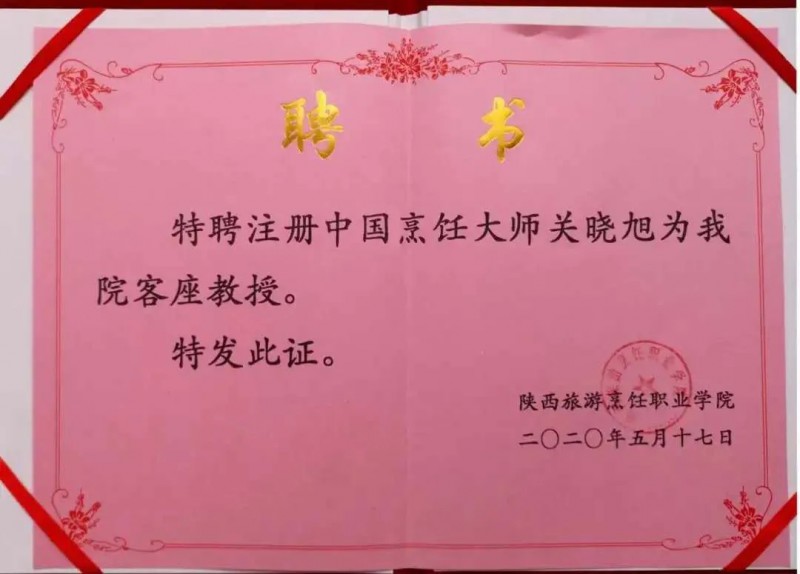 聘书
特聘注册中国烹饪大师关晓旭为我
院客座教授。
特发此证。
陕西旅游烹饪职业学院
二〇二〇年五月十七日